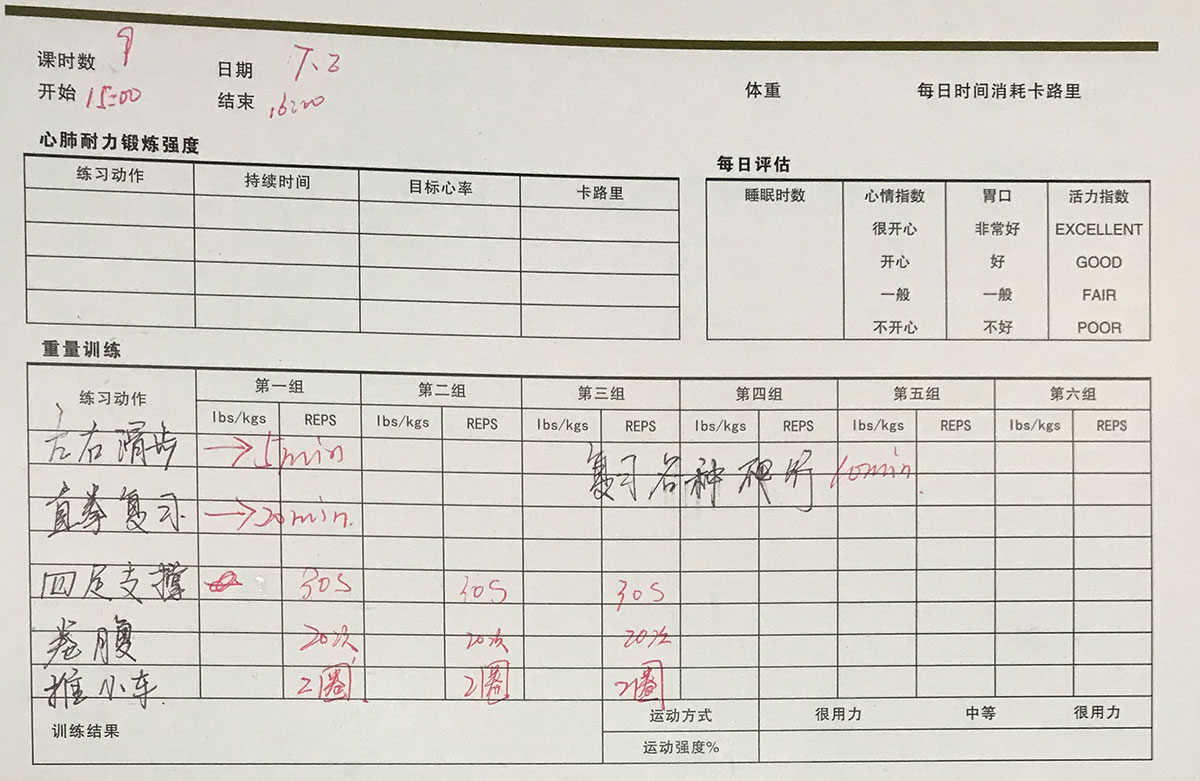 课时数 9 日期 7、3
开始 15:00 结束 16:00 体重 每日时间消耗卡路里
心肺耐力锻炼强度
练习动作 持续时间 目标心率 卡路里
每日评估
睡眠时数 心情指数 胃口 活力指数
很开心 非常好 EXCELLENT
开心 好 GOOD
一般 一般 FAIR
不开心 不好 POOR
重量训练
练习动作 第一组 第二组 第三组 第四组 第五组 第六组
lbs/kgs REPS lbs/kgs REPS lbs/kgs REPS lbs/kgs REPS lbs/kgs REPS lbs/kgs REPS
左右滑步 →5min
复习各种 10min
直拳复习 →20min.
四足支撑 30S 30S 30S
卷腹 20次 20次 20次
推小车 2圈 2圈 2圈
训练结果 运动方式 很用力 中等 很用力
运动强度%